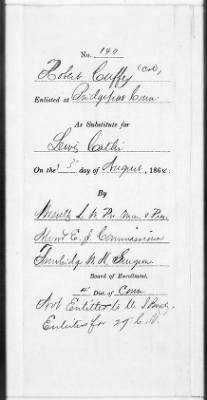 No. 140
Robert Cuffy (Col)
Enlisted at Bridgeport Conn
As Substitute for
Lewis Catlin
On the 3 day of August, 1864.
By
L. H. Pro. Mar.
E. J. Commissioner
Trowbridge Surgeon
Board of Enrollment.
4" Dist. of Conn
Not Entitled to U. S. Bounty
Enlisted for 29 C. V.